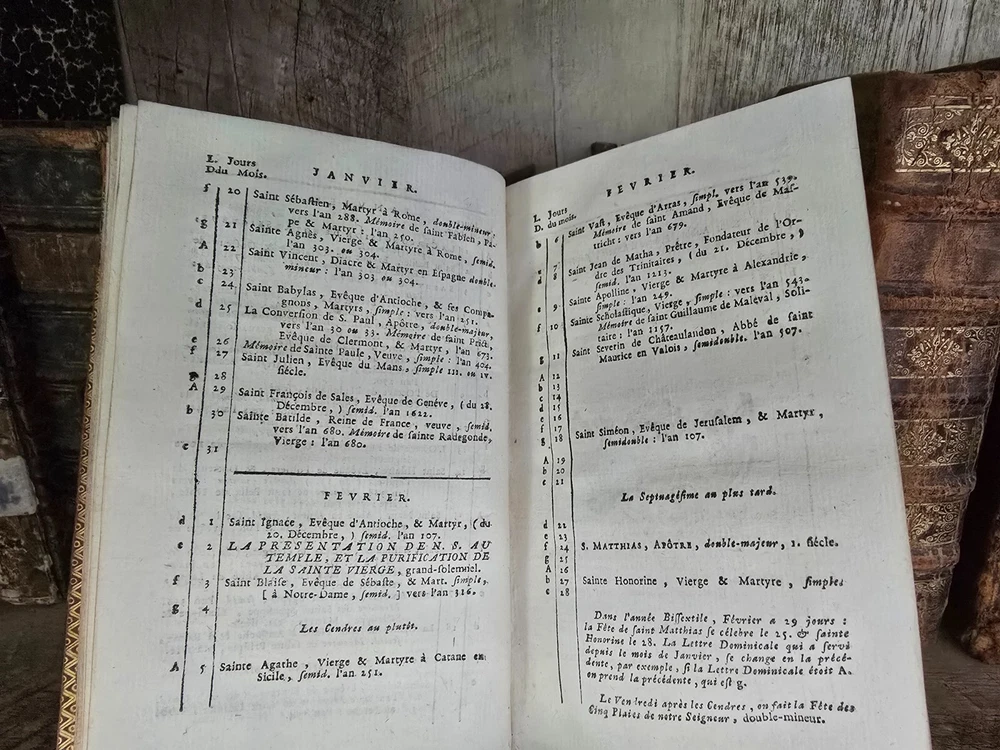 L. Jours
D. du Mois.
JANVIER.
f 20 Saint Sébastien, Martyr à Rome, double-mineur:
vers l'an 288. Mémoire de saint Fabien, Pa-
pe & Martyr: l'an 250.
g 21 Sainte Agnès, Vierge & Martyre à Rome, semid.
l'an 303. ou 304.
A 22 Saint Vincent, Diacre & Martyr en Espagne double-
mineur: l'an 303 ou 304.
b 23
c 24 Saint Babylas, Evêque d'Antioche, & ses Compa-
gnons, Martyrs, simple: vers l'an 251.
d 25 La Conversion de S. Paul, Apôtre, double-majeur,
vers l'an 30 ou 33. Mémoire de saint Prict,
Evêque de Clermont, & Martyr, l'an 673.
e 26 Mémoire de Sainte Paule, Veuve, simple: l'an 404.
f 27 Saint Julien, Evêque du Mans, simple III. ou IV.
siécle.
g 28
A 29 Saint François de Sales, Evêque de Genéve, (du 28.
Décembre,) semid. l'an 1622.
b 30 Sainte Batilde, Reine de France, veuve, semid.
vers l'an 680. Mémoire de sainte Radegonde,
Vierge: l'an 680.
c 31
FEVRIER.
d 1 Saint Ignace, Evêque d'Antioche, & Martyr, (du
20. Décembre,) semid. l'an 107.
e 2 LA PRÉSENTATION DE N. S. AU
TEMPLE, ET LA PURIFICATION DE
LA SAINTE VIERGE, grand-solemnel.
f 3 Saint Blaise, Evêque de Sébaste, & Mart. simple,
[à Notre-Dame, semid.] vers l'an 316.
g 4
Les Cendres au plutôt.
A 5 Sainte Agathe, Vierge & Martyre à Catane en
Sicile, semid. l'an 251.
L. Jours
D. du mois.
FEVRIER.
b 6 Saint Vast, Evêque d'Arras, simpl. vers l'an 539.
Mémoire de saint Amand, Evêque de Mas-
tricht: vers l'an 679.
7
8 Saint Jean de Matha, Prêtre, Fondateur de l'Or-
dre des Trinitaires, (du 21. Décembre,)
semid. l'an 1213.
e 9 Sainte Apolline, Vierge & Martyre à Alexandrie,
simple: l'an 249.
f 10 Sainte Scholastique, Vierge, simple: vers l'an 543.
Mémoire de saint Guillaume de Maleval, Soli-
taire: l'an 1157.
g 11 Saint Severin de Châteaulandon, Abbé de saint
Maurice en Valois, semidouble. l'an 507.
A 12
b 13
c 14
d 15
e 16
f 17
g 18 Saint Siméon, Evêque de Jerusalem, & Martyr,
semidouble: l'an 107.
A 19
b 20
c 21
La Septuagésime au plus tard.
d 22
e 23
f 24 S. MATTHIAS, APÔTRE, double-majeur, 1. siécle.
g 25
A 26
b 27 Sainte Honorine, Vierge & Martyre, simple:
c 28
Dans l'année Bissextile, Février a 29 jours:
la Fête de saint Matthias se célebre le 25. & sainte
Honorine le 28. La Lettre Dominicale qui a servi
depuis le mois de Janvier, se change en la précé-
dente, par exemple, si la Lettre Dominicale étoit A.
on prend la précédente, qui est g.
Le Vendredi après les Cendres, on fait la Fête des
Cinq Plaies de notre Seigneur, double-mineur.